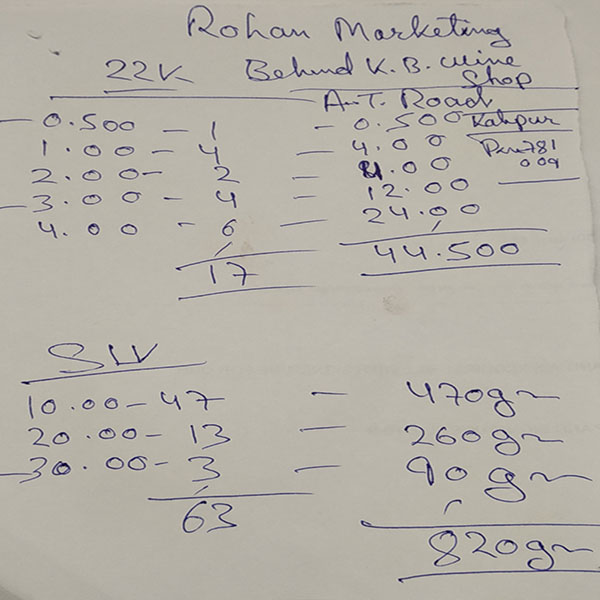 Rohan Marketing
22K Behind K. B. wine
Shop
A.T. Road
0.500 - 1 - 0.500 Kalipur
1.00 - 4 - 4.00 781
2.00 - 2 - 4.00 009
3.00 - 4 - 12.00
4.00 - 6 - 24.00
17 44.500
10.00 - 47 - 470gm
20.00 - 13 - 260gm
30.00 - 3 - 90gm
63 820gm